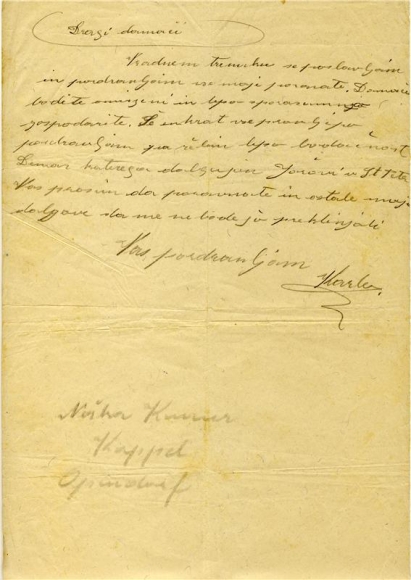 Dragi domači
Zadnem trenutku se poslavljam
in pozdravljam vse moje poznate. Domači
bodite smireni in lepo sporazumno
gospodarite. Še enkrat vse prav lepo
pozdravljam ga želim lepo bodočnost
Denar katerega dolgujem v St
Vas prosim da poravnate in ostale moje
dolgove da me ne bodejo preklinjali
Vas pozdravljam
Karlo.
Kappel